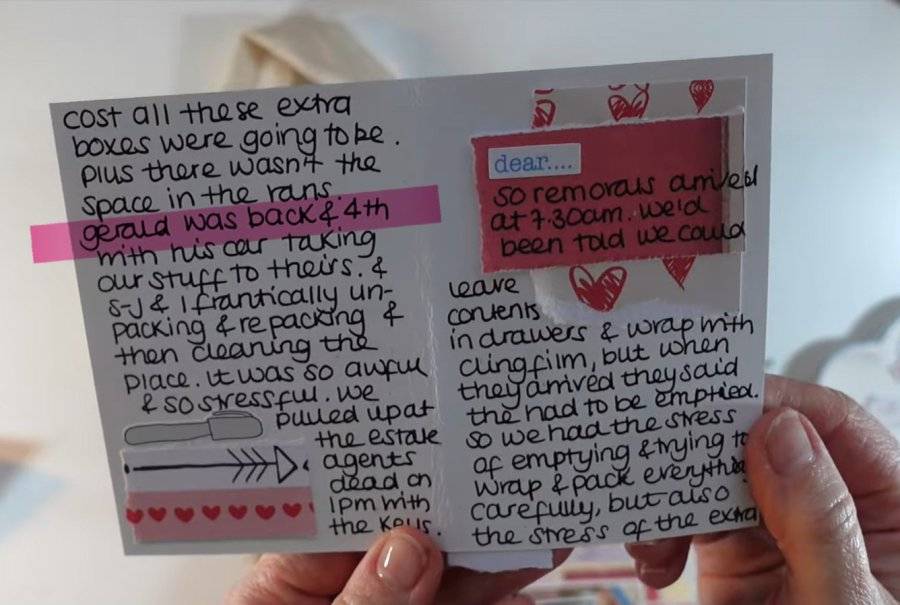 cost all these extra
boxes were going to be.
plus there wasn't the
space in the vans.
gerald was back & 4th
with his car taking
our stuff to theirs. &
S-J & I frantically un-
packing & repacking &
then cleaning the
place. it was so awful
& so stressful. we
pulled up at
the estate
agents
dead on
1pm with
the keys.
dear....
so removals arrived
at 7.30am. we'd
been told we could
leave
contents
in drawers & wrap with
clingfilm, but when
they arrived they said
the had to be emptied.
so we had the stress
of emptying & trying to
wrap & pack everything
carefully, but also
the stress of the extra